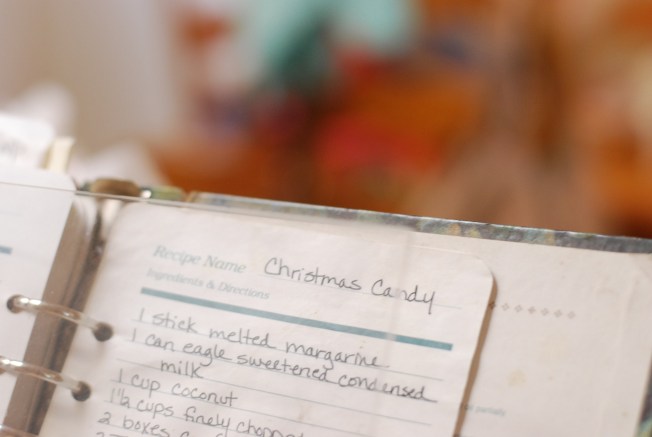 Recipe Name Christmas Candy
Ingredients & Directions
1 stick melted margarine
1 can eagle sweetened condensed
milk
1 cup coconut
1½ cups finely
2 boxes